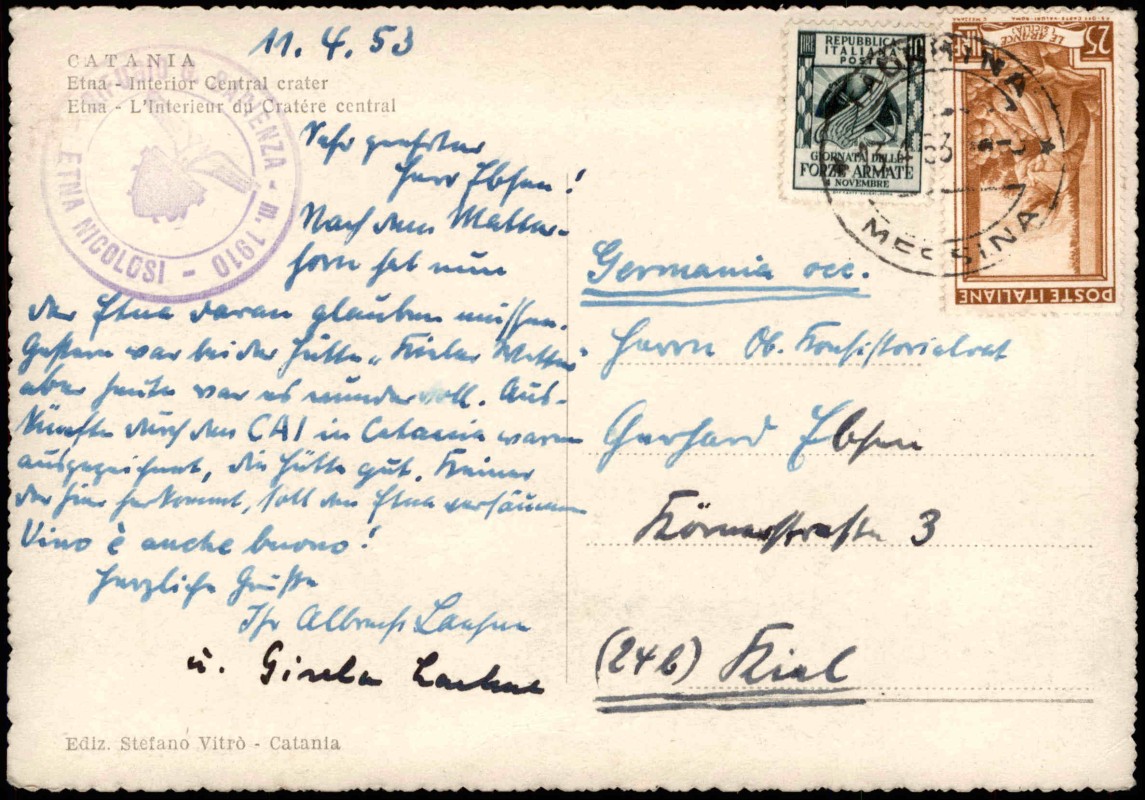 11. 4. 53
CATANIA
Etna - Interior Central crater
Etna - L'Interieur du Cratére central
SAPIENZA - m. 1910 -
ETNA NICOLOSI
Sehr geehrter
Herr Ebsen!
Nach dem Matter-
horn hat nun
der Etna daran glauben müssen.
Gestern war bei der Hütte „Kieler Wetter"
aber heute war es wundervoll. Aus-
künfte durch den CAI in Catania waren
ausgezeichnet, die Hütte gut. Keiner
der hier herkommt, soll den Etna versäumen
Vino è anche buono!
Herzliche Grüße
Ihr Albrecht
u. Gisela
Ediz. Stefano Vitrò - Catania
LIRE 10
REPUBBLICA
ITALIANA
POSTE
GIORNATA DELLE
FORZE ARMATE
4 NOVEMBRE
25
LIRE
POSTE ITALIANE
TAORMINA
53
MESSINA
Germania occ.
Herrn Ob. Konsistorialrat
Gerhard Ebsen
Körnerstraße 3
(24b) Kiel